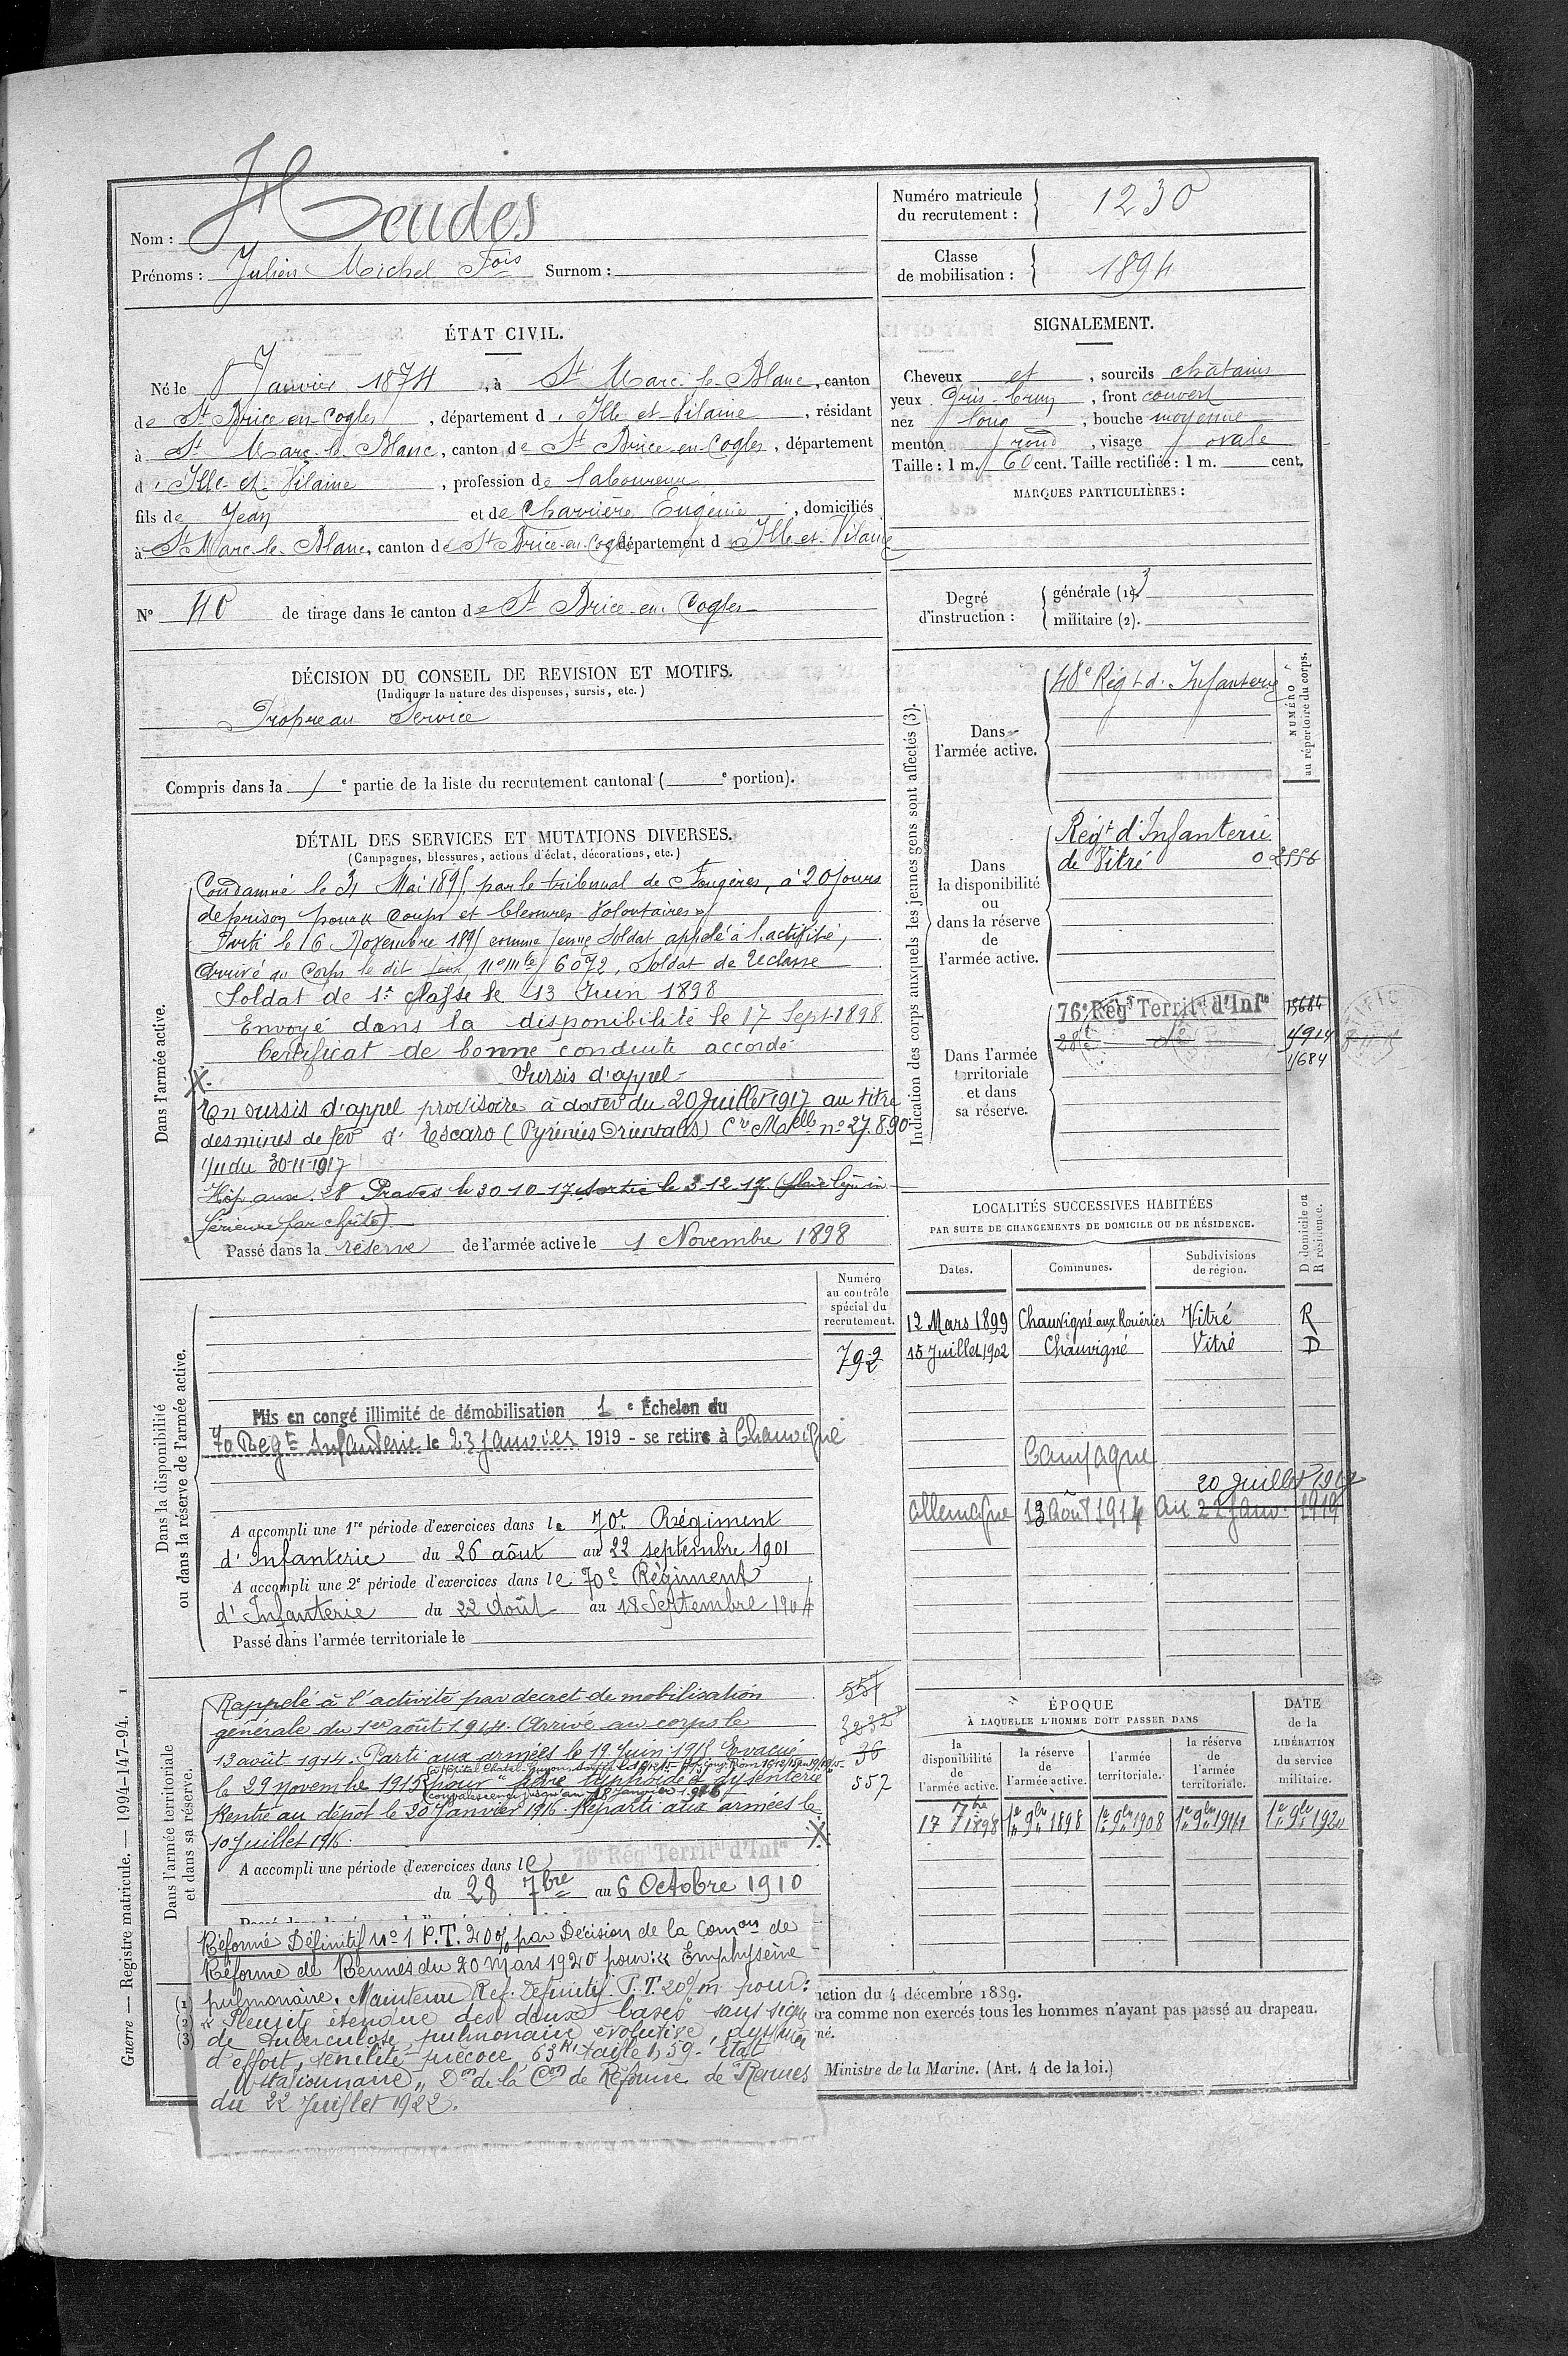 Nom : Heudes
Prénoms : Julien Michel Fois Surnom :
Numéro matricule du recrutement : 1230
Classe de mobilisation : 1894
ÉTAT CIVIL.
Né le 8 Janvier 1874, à St Marc-le-Blanc, canton
de St Brice-en-Cogles, département d'Ille-et-Vilaine, résidant
à St Marc-le-Blanc, canton de St Brice-en-Cogles, département
d'Ille-et-Vilaine, profession de laboureur
fils de Jean et de Charrière Eugénie, domiciliés
à St Marc-le-Blanc, canton de St Brice-en-Cogles département d Ille-et-Vilaine
N° 40 de tirage dans le canton de St Brice-en-Cogles
SIGNALEMENT.
Cheveux et, sourcils châtains
yeux gris-brun, front couvert
nez long, bouche moyenne
menton rond, visage ovale
Taille : 1 m. 60 cent. Taille rectifiée : 1 m. cent.
MARQUES PARTICULIÈRES :
Degré d'instruction :
générale (1). 3
militaire (2).
DÉCISION DU CONSEIL DE REVISION ET MOTIFS.
(Indiquer la nature des dispenses, sursis, etc.)
Propre au Service
Compris dans la 1e partie de la liste du recrutement cantonal ( e portion).
DÉTAIL DES SERVICES ET MUTATIONS DIVERSES.
(Campagnes, blessures, actions d'éclat, décorations, etc.)
Dans l'armée active.
Condamné le 31 Mai 1895 par le tribunal de Fougères, à 20 jours
de prison pour « coups et blessures volontaires »
Parti le 16 Novembre 1895 comme jeune soldat appelé à l'activité,
Arrivé au Corps le dit jour, no mle 6072, Soldat de 2e classe
Soldat de 1e classe le 13 Juin 1898
Envoyé dans la disponibilité le 17 Sept 1898
Certificat de bonne conduite accordé
X. Sursis d'appel
En sursis d'appel provisoire à dater du 20 Juillet 1917 au titre
des mines de fer d'Escaro (Pyrénées Orientales) Cre Melle no 27.890
du 30-11-1917
Hôp. aux. 28 Prades le 30-10-17 sortie le 3-12-17
par chûte)
Passé dans la réserve de l'armée active le 1 Novembre 1898
Indication des corps auxquels les jeunes gens sont affectés (3).
NUMÉRO au répertoire du corps.
Dans l'armée active.
48e Régt d'Infanterie
Dans la disponibilité ou dans la réserve de l'armée active.
Régt d'Infanterie
de Vitré 0 2556
Dans l'armée territoriale et dans sa réserve.
76e Régt Territal d'Infie 15684
28e do 4914
1684
LOCALITÉS SUCCESSIVES HABITÉES
PAR SUITE DE CHANGEMENTS DE DOMICILE OU DE RÉSIDENCE.
Dates. Communes. Subdivisions de région. D domicile ou R résidence.
12 Mars 1899 Chauvigné aux Rouéries Vitré R
15 Juillet 1902 Chauvigné Vitré D
Campagne
20 Juillet 1917
Allemagne 13 Août 1914 au 22 Janv. 1919
Dans la disponibilité ou dans la réserve de l'armée active.
Numéro au contrôle spécial du recrutement.
792
Mis en congé illimité de démobilisation 1e Échelon du
70 Regt Infanterie le 23 Janvier 1919 - se retire à Chauvigné
A accompli une 1re période d'exercices dans le 70e Régiment
d'Infanterie du 26 août au 22 septembre 1901
A accompli une 2e période d'exercices dans le 70e Régiment
d'Infanterie du 22 Août au 18 Septembre 1904
Passé dans l'armée territoriale le
Dans l'armée territoriale et dans sa réserve.
Rappelé à l'activité par decret de mobilisation
générale du 1er août 1914. Arrivé au corps le
13 août 1914. Parti aux armées le 19 Juin 1915 Evacué
le 29 novembre 1915 pour "fièvre typhoïde & dysenterie
convalescence jusqu'au 18 janvier 1916
Rentré au dépôt le 20 Janvier 1916. Reparti aux armées le
10 Juillet 1916. X
551
3232
36
557
A accompli une période d'exercices dans le 76e Régt Territal d'Infie
du 28 7bre au 6 Octobre 1910
Réformé Définitif no 1 P.T. 20% par Décision de la Comon de
Réforme de Rennes du 20 Mars 1920 pour : « Emphysème
pulmonaire. Maintenu Ref. Définitif. P.T. 20% pour :
« Pleurite étendue des deux bases sans signe
de tuberculose pulmonaire évolutive, dyspnée
d'effort, sénilité précoce, 63k, taille 1,59. État
stationnaire » Don de la Con de Réforme de Rennes
du 22 Juillet 1922.
ÉPOQUE
À LAQUELLE L'HOMME DOIT PASSER DANS
la disponibilité de l'armée active. la réserve de l'armée active. l'armée territoriale. la réserve de l'armée territoriale. DATE de la LIBÉRATION du service militaire.
17 7bre 1898 1er 9bre 1898 1er 9bre 1908 1er 9bre 1914 1er 9bre 1920
(1)
(2)
(3)
uction du 4 décembre 1889.
ra comme non exercés tous les hommes n'ayant pas passé au drapeau.
né.
Ministre de la Marine. (Art. 4 de la loi.)
Guerre — Registre matricule. — 1994-147-94. 1